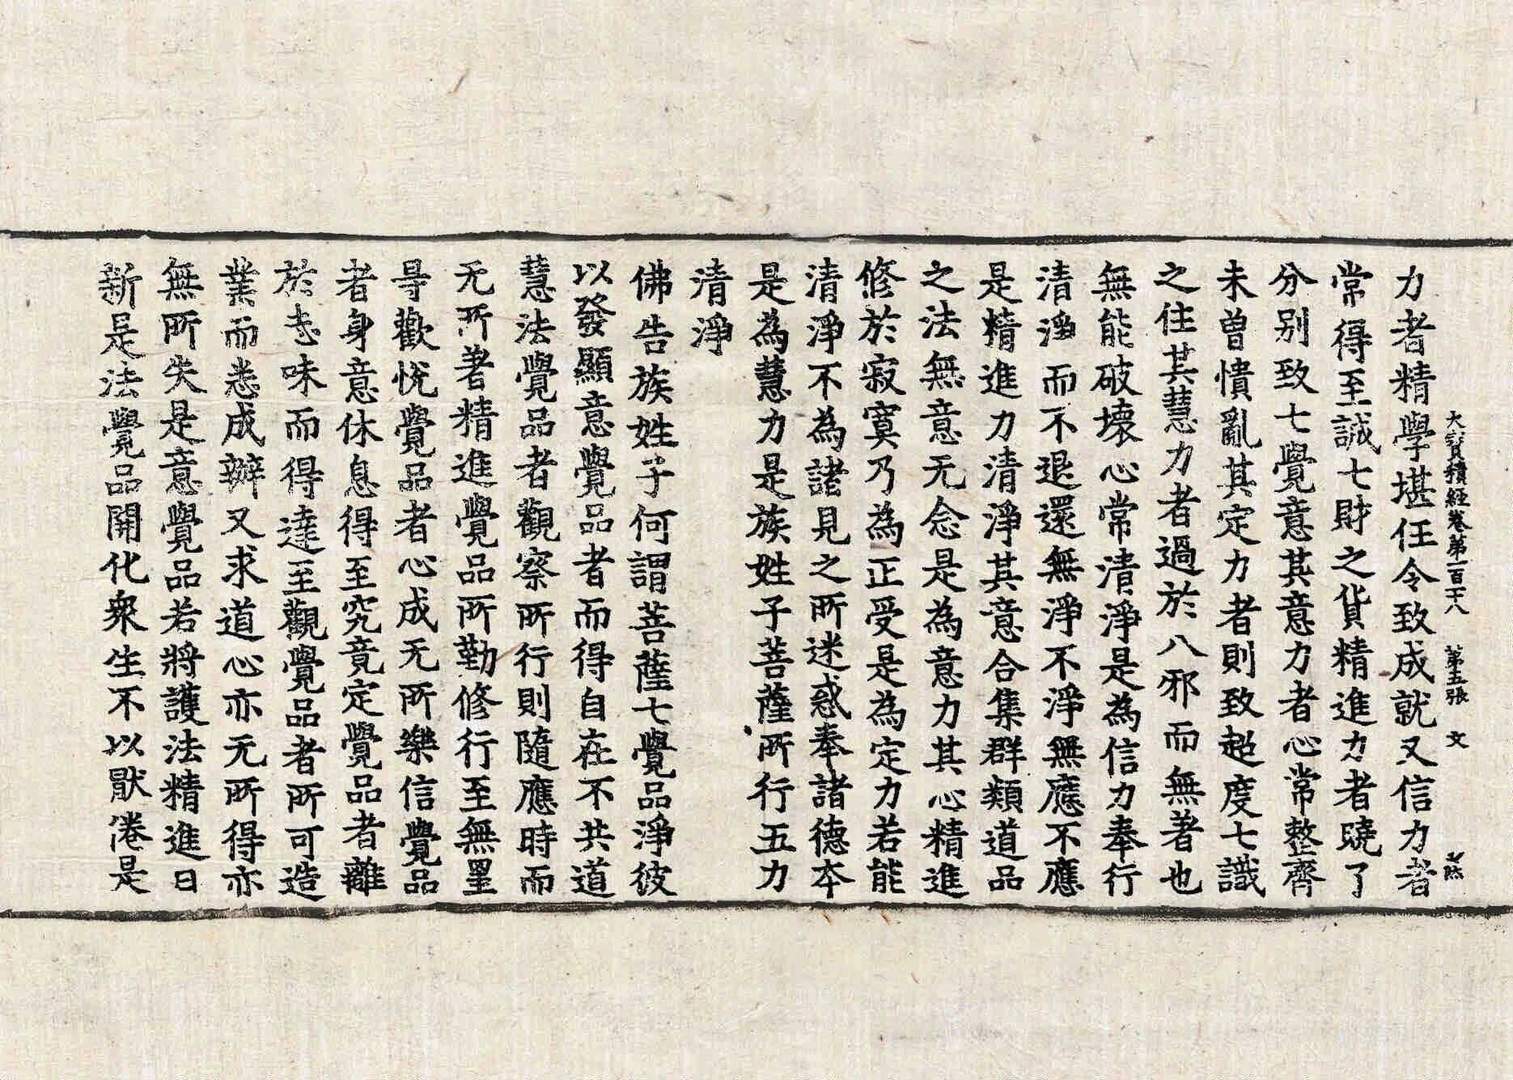 大寶積經卷第一百十八 第五張 文
力者精學堪任令致成就又信力者
常得至誠七財之貨精進力者曉了
分别致七覺意其意力者心常整齊
未曾憒亂其定力者則致超度七識
之住其慧力者過於八邪而無著也
無能破壞心常清淨是為信力奉行
清淨而不退還無淨不淨無應不應
是精進力清淨其意合集群類道品
之法無意无念是為意力其心精進
修於寂寞乃為正受是為定力若能
清淨不為諸見之所迷惑奉諸德本
是為慧力是族姓子菩薩所行五力
清淨
佛告族姓子何謂菩薩七覺品淨彼
以發顯意覺品者而得自在不共道
慧法覺品者觀察所行則隨應時而
无所著精進覺品所勤修行至無罣
㝵歡悅覺品者心成无所樂信覺品
者身意休息得至究竟定覺品者離
於志味而得達至觀覺品者所可造
業而悉成辦又求道心亦无所得亦
無所失是意覺品若將護法精進日
新是法覺品開化衆生不以猒倦是